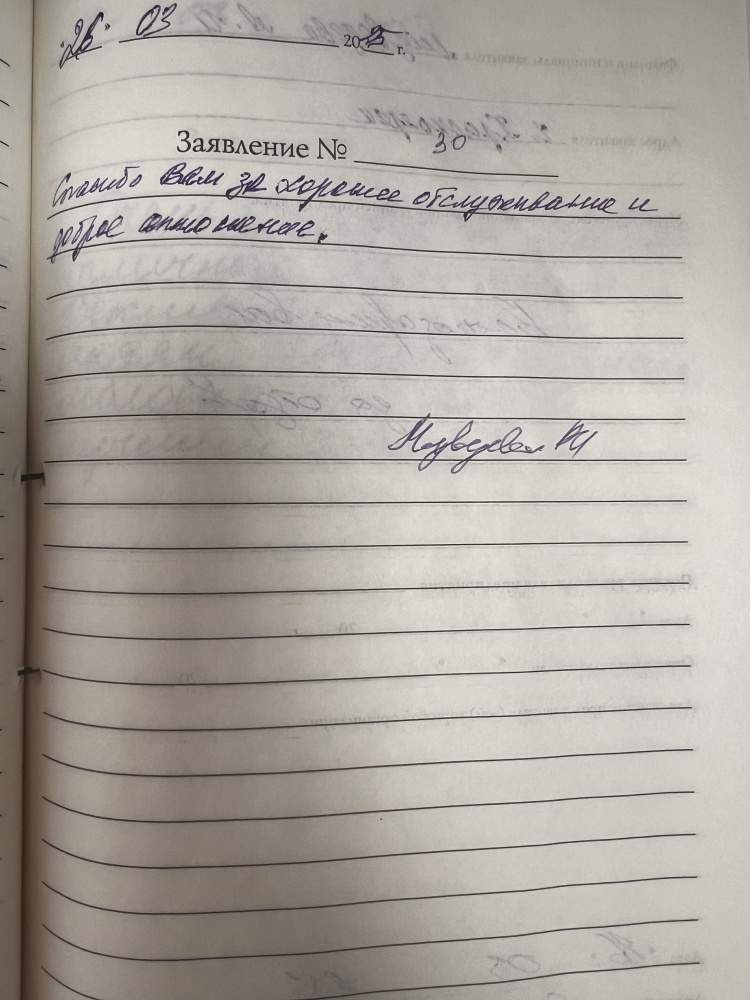 "26" 03 2025 г.
Заявление № 30
Спасибо Вам за хорошее отслуживание и
доброе отношение.